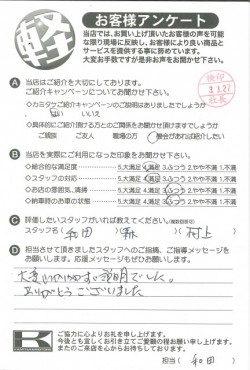 軽
お客様アンケート
当店では、お買い上げ頂いたお客様の声を可能
な限り現場に反映し、お客様により良い商品と
サービスを提供すべく日々努めています。
大変お手数ですが是非お声をお聞かせ下さい。
検印
3.27
社長
A 当店はご紹介を大切にしております。
ご紹介キャンペーンについてお聞かせ下さい。
◇カミタケご紹介キャンペーンのご説明はありましたでしょうか
はい いいえ
◇具体的にご紹介頂ける方とのご関係をお聞かせ頂けますでしょうか
ご親類 ご友人 職場の方 機会があれば紹介したい
B 当店を実際にご利用になった印象をお聞かせ下さい。
◇総合的な満足度 5.大満足 4.満足 3.ふつう 2.やや不満 1.不満
◇スタッフの対応 5.大満足 4.満足 3.ふつう 2.やや不満 1.不満
◇お店の雰囲気、清掃 5.大満足 4.満足 3.ふつう 2.やや不満 1.不満
◇納車時のお車の状態 5.大満足 4.満足 3.ふつう 2.やや不満 1.不満
C 評価したいスタッフがいれば教えてください。
スタッフ名( 和田 )( )( 村上 )
D 担当させて頂きましたスタッフへのご指摘、ご指導メッセージを
お願いします。応援メッセージもぜひお願いします。
大変わかりやすい説明でした。
ありがとうございました
K
ご協力に心よりお礼を申し上げます。
今後とも宜しくお引き立てご愛顧の程お願い申し上げます。
またのご来店を心からお待ちしております。
担当( 和田 )